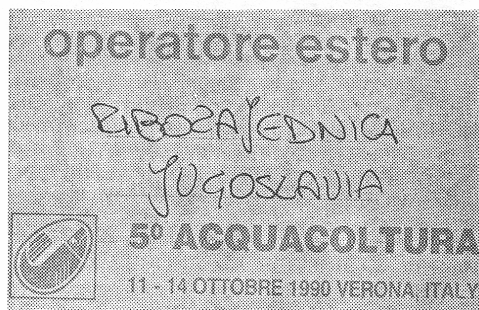 operatore estero
RIBOZAJEDNICA
JUGOSLAVIA
5º ACQUACOLTURA
11 - 14 OTTOBRE 1990 VERONA, ITALY